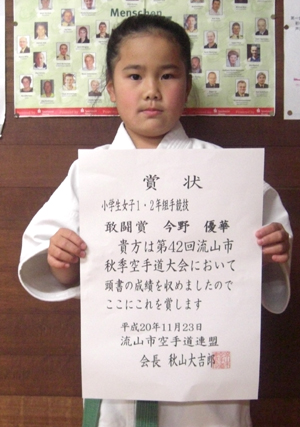 Menschen
賞状
小学生女子1・2年組手競技
敢闘賞 今野 優華
貴方は第42回流山市
秋季空手道大会において
頭書の成績を収めましたので
ここにこれを賞します
平成20年11月23日
流山市空手道連盟
会長 秋山大吉郎